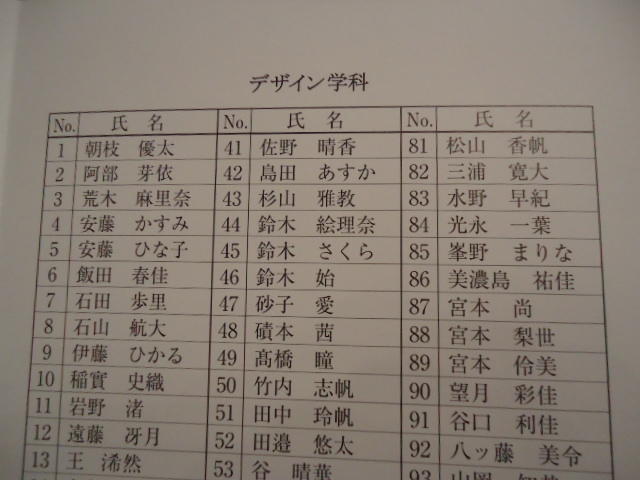 デザイン学科
No. 氏 名 No. 氏 名 No. 氏 名
1 朝枝 優太 41 佐野 晴香 81 松山 香帆
2 阿部 芽依 42 島田 あすか 82 三浦 寛大
3 荒木 麻里奈 43 杉山 雅教 83 水野 早紀
4 安藤 かすみ 44 鈴木 絵理奈 84 光永 一葉
5 安藤 ひな子 45 鈴木 さくら 85 峯野 まりな
6 飯田 春佳 46 鈴木 始 86 美濃島 祐佳
7 石田 歩里 47 砂子 愛 87 宮本 尚
8 石山 航大 48 磧本 茜 88 宮本 梨世
9 伊藤 ひかる 49 髙橋 瞳 89 宮本 伶美
10 稲實 史織 50 竹内 志帆 90 望月 彩佳
11 岩野 渚 51 田中 玲帆 91 谷口 利佳
12 遠藤 冴月 52 田邉 悠太 92 八ッ藤 美令
13 王 浠然 53 谷 晴華 93